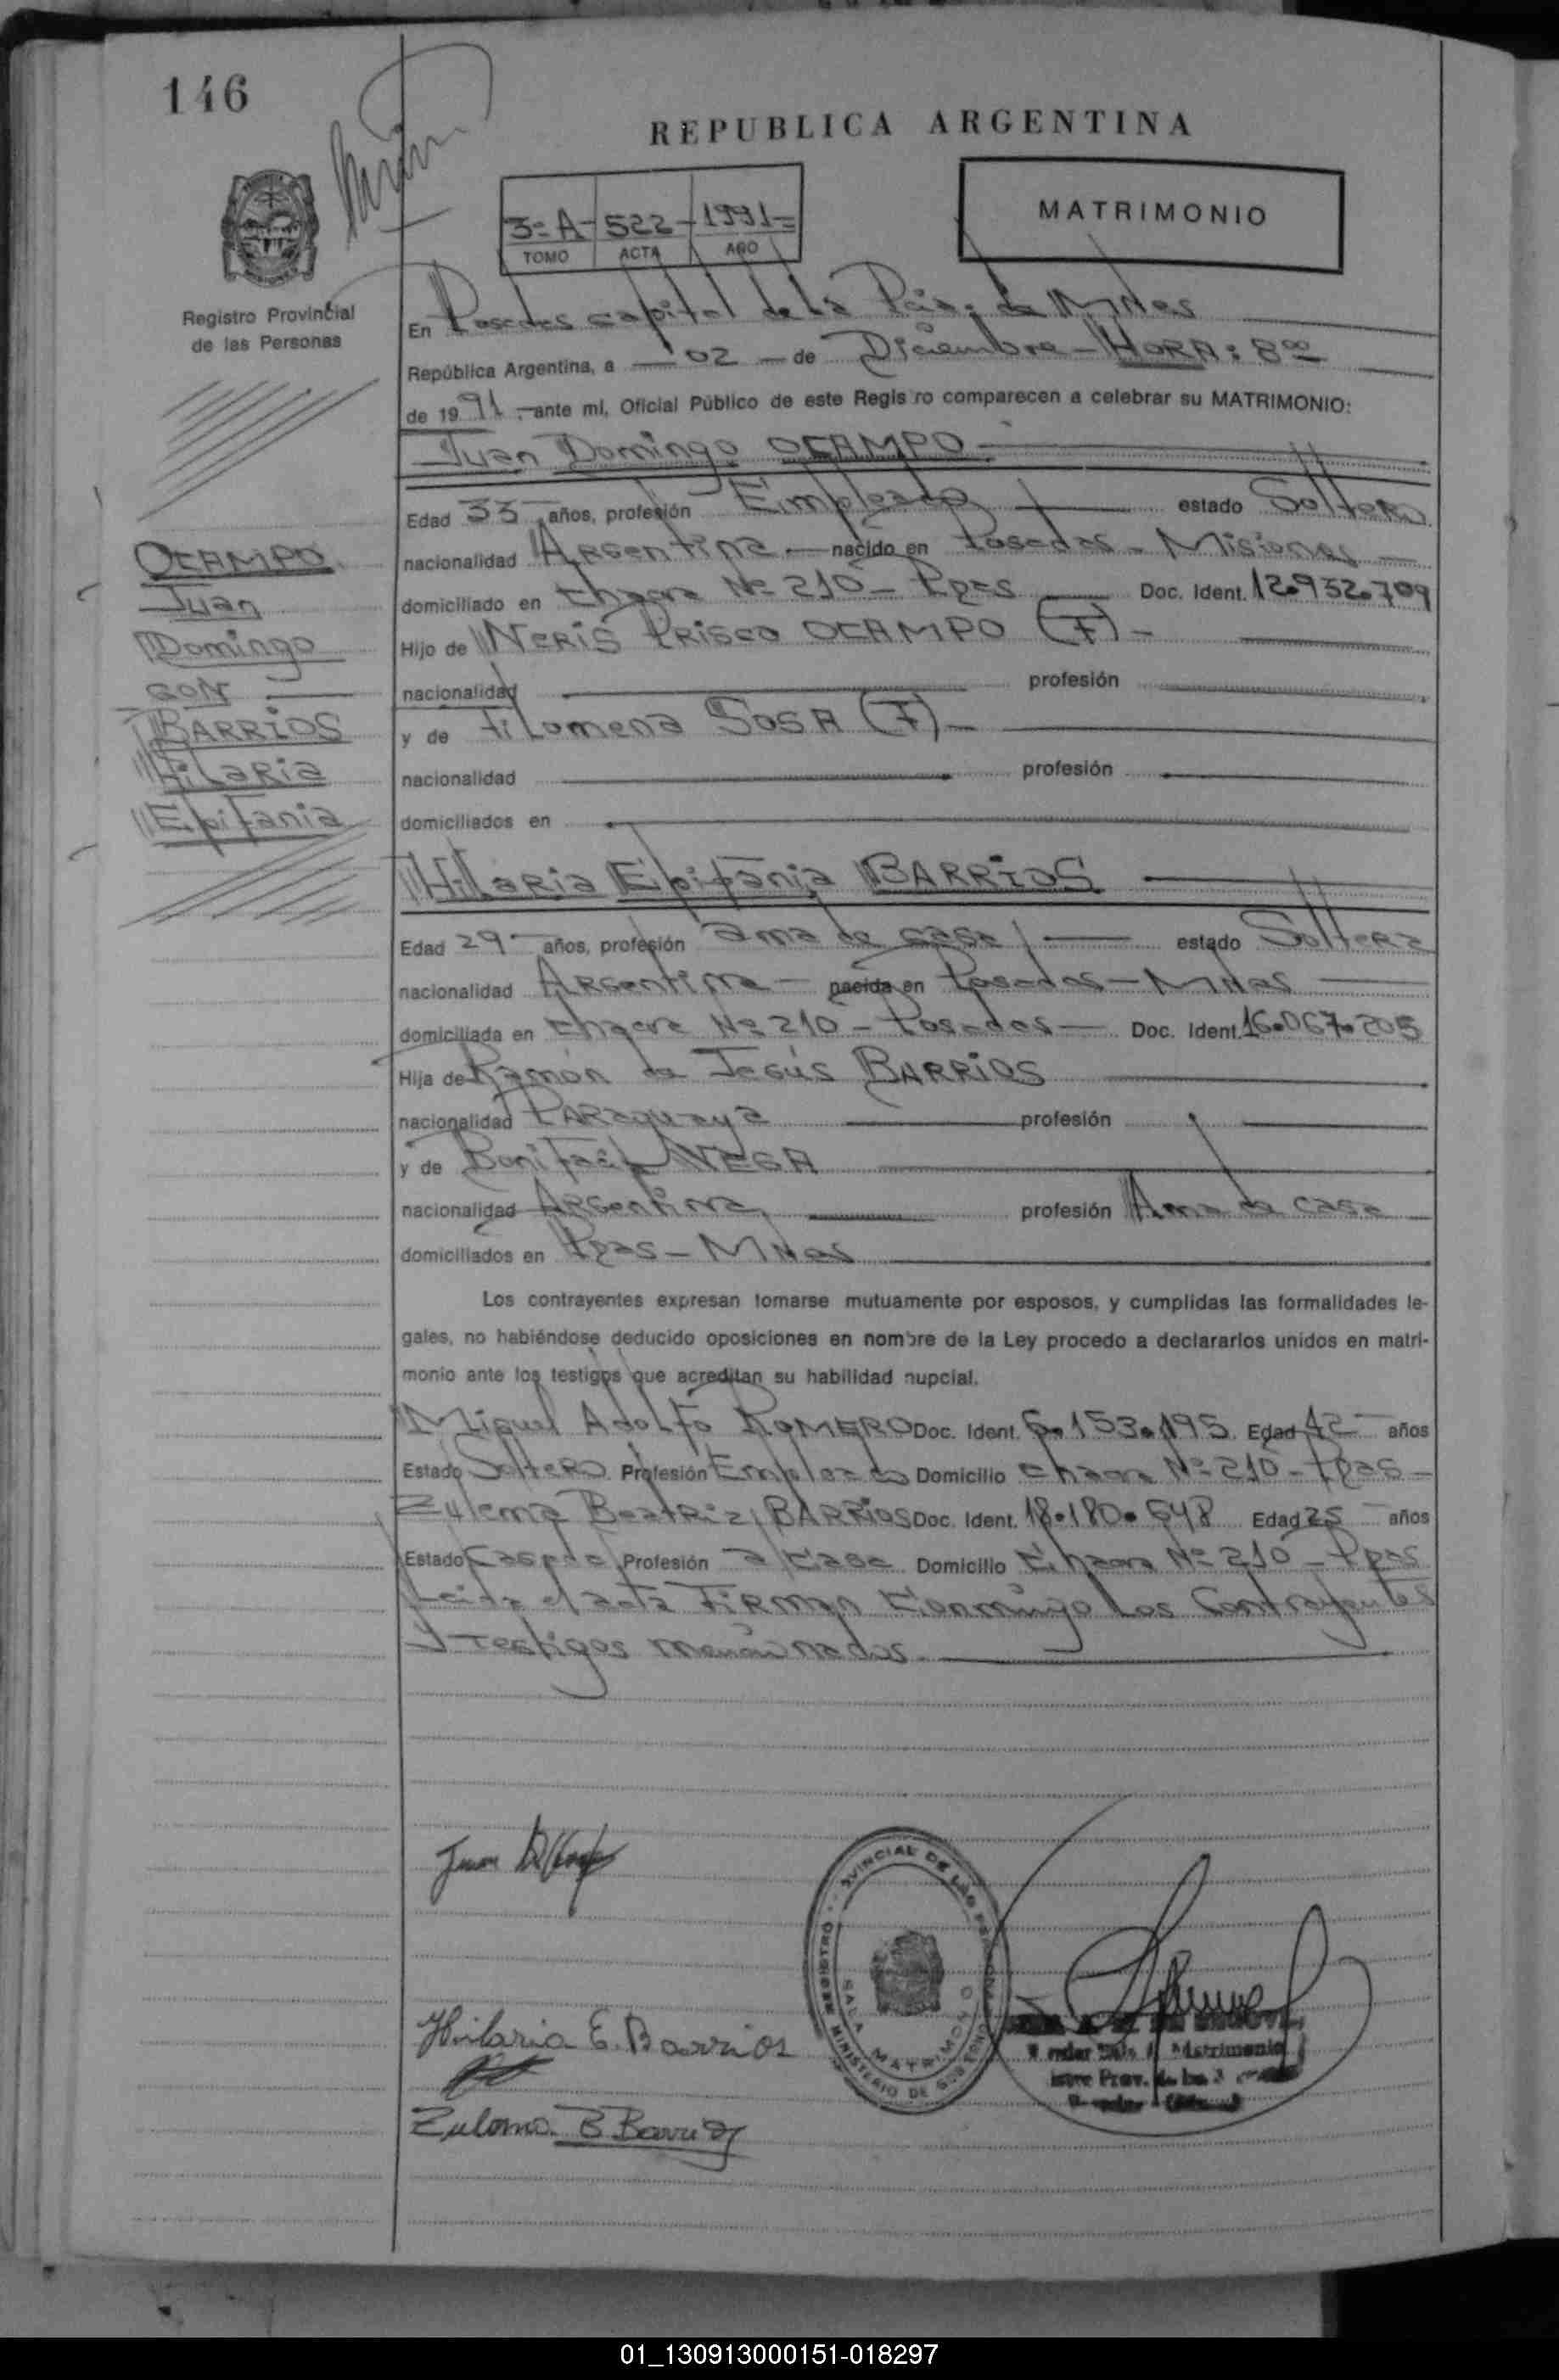 146
REPUBLICA ARGENTINA
3=A- 522 -1991=
TOMO ACTA AÑO
MATRIMONIO
Registro Provincial
de las Personas
En Posadas capital de la Pcia: de Mnes
República Argentina, a 02 de Diciembre - HORA: 8oo
de 1991.- ante mi, Oficial Público de este Registro comparecen a celebrar su MATRIMONIO:
Juan Domingo OCAMPO
Edad 33 años, profesión Empleado estado Soltero
nacionalidad Argentina nacido en Posadas - Misiones
domiciliado en Chacra Nº 210 - Ppas Doc. Ident. 12.932.709
Hijo de Neris Prisco OCAMPO (F)-
nacionalidad profesión
y de Filomena SOSA (F)-
nacionalidad profesión
domiciliados en
OCAMPO
Juan
Domingo
CON
BARRIOS
Hilaria
Epifania
Hilaria Epifania BARRIOS
Edad 29 años, profesión ama de casa estado Soltera
nacionalidad Argentina - nacida en Posadas - Mnes
domiciliada en Chacra Nº 210 - Posadas Doc. Ident. 16.067.205
Hija de Ramón de Jesús BARRIOS
nacionalidad Paraguaya profesión
y de Bonifacia VEGA
nacionalidad Argentina profesión Ama de casa
domiciliados en Ppas - Mnes
Los contrayentes expresan tomarse mutuamente por esposos, y cumplidas las formalidades le-
gales, no habiéndose deducido oposiciones en nombre de la Ley procedo a declararlos unidos en matri-
monio ante los testigos que acreditan su habilidad nupcial.
Miguel Adolfo ROMERO Doc. Ident. 6.153.195 Edad 42 años
Estado Soltero Profesión Empleado Domicilio Chacra Nº 210 - Ppas -
Zulema Beatriz BARRIOS Doc. Ident. 18.180.648 Edad 25 años
Estado Casada Profesión a casa Domicilio Chacra Nº 210 - Ppas
Leida el acta Firman Conmigo Los Contrayentes
y testigos mencionados.
Juan D
Hilaria E. Barrios
Zulema B Barrios
REGISTRO PROVINCIAL DE LAS PERSONAS
SALA MATRIMONIO
MINISTERIO DE GOBIERNO
Matrimonio
Prov. de las
01_130913000151-018297